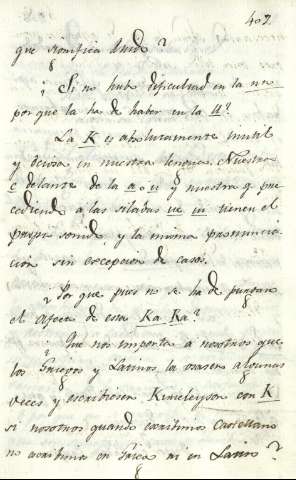 402.
que significa duide?
¿Si no hube dificultad en la nn
por que la ha de haber en la ll?
La K es absolutamente inutil
y ociosa in nuestra lengua. Nuestra
c delante de la a. o. u y nuestra q pre
cediendo a las silabas ue ui tienen el
propio sonido, y la misma pronuncia-
ción sin excepcion de casos.
¿Por que pues no se ha de purgar
el Afeca de esta Ka Ka?
Que nos importa a nosotros que
los Griegos y Latinos la usasen algunas
veces y escribiesen Kirieleyson con K.
si nosotros quando escribimos Castellano
no escribimos en Griego ni en Latin?